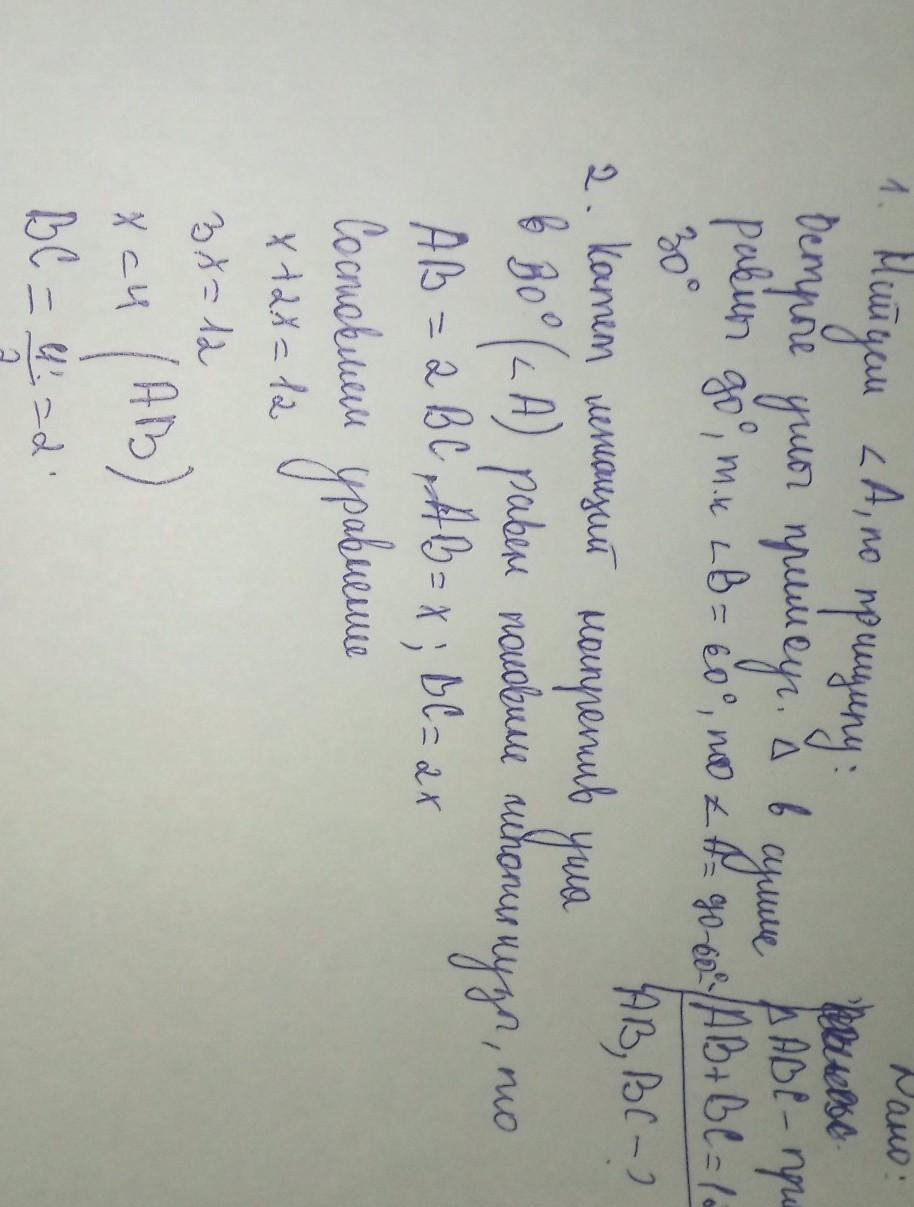 Дано:
△ ABC - при
AB+BC=1
AB, BC - ?
1. Найдем ∠A, по принципу:
Острые углы прямоуг. △ в сумме
равны 90°, т.к ∠B = 60°, то ∠A = 90-60°=
30°
2. Катет лежащий напротив угла
в 30° (∠A) равен половине гипотенузы, то
AB = 2 BC, AB = x ; BC = 2x
Составляем уравнение
x + 2x = 12
3x = 12
x = 4 (AB)
BC = 4/2 = 2.